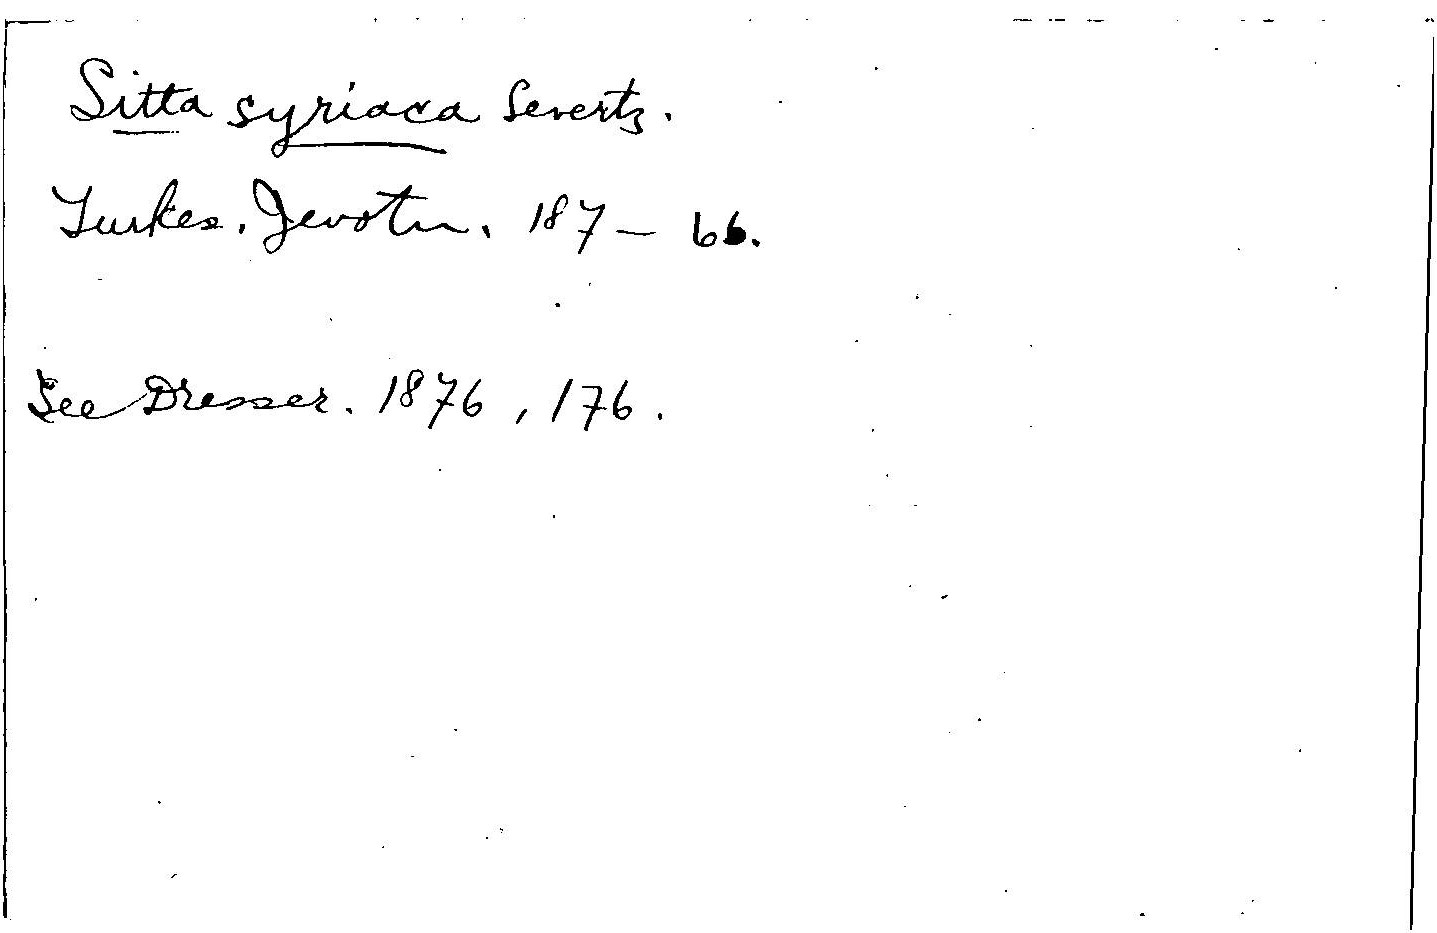 Sitta syriaca Severtz.
Turkes. Jevotn. 187 — 66.
See Dresser. 1876, 176.